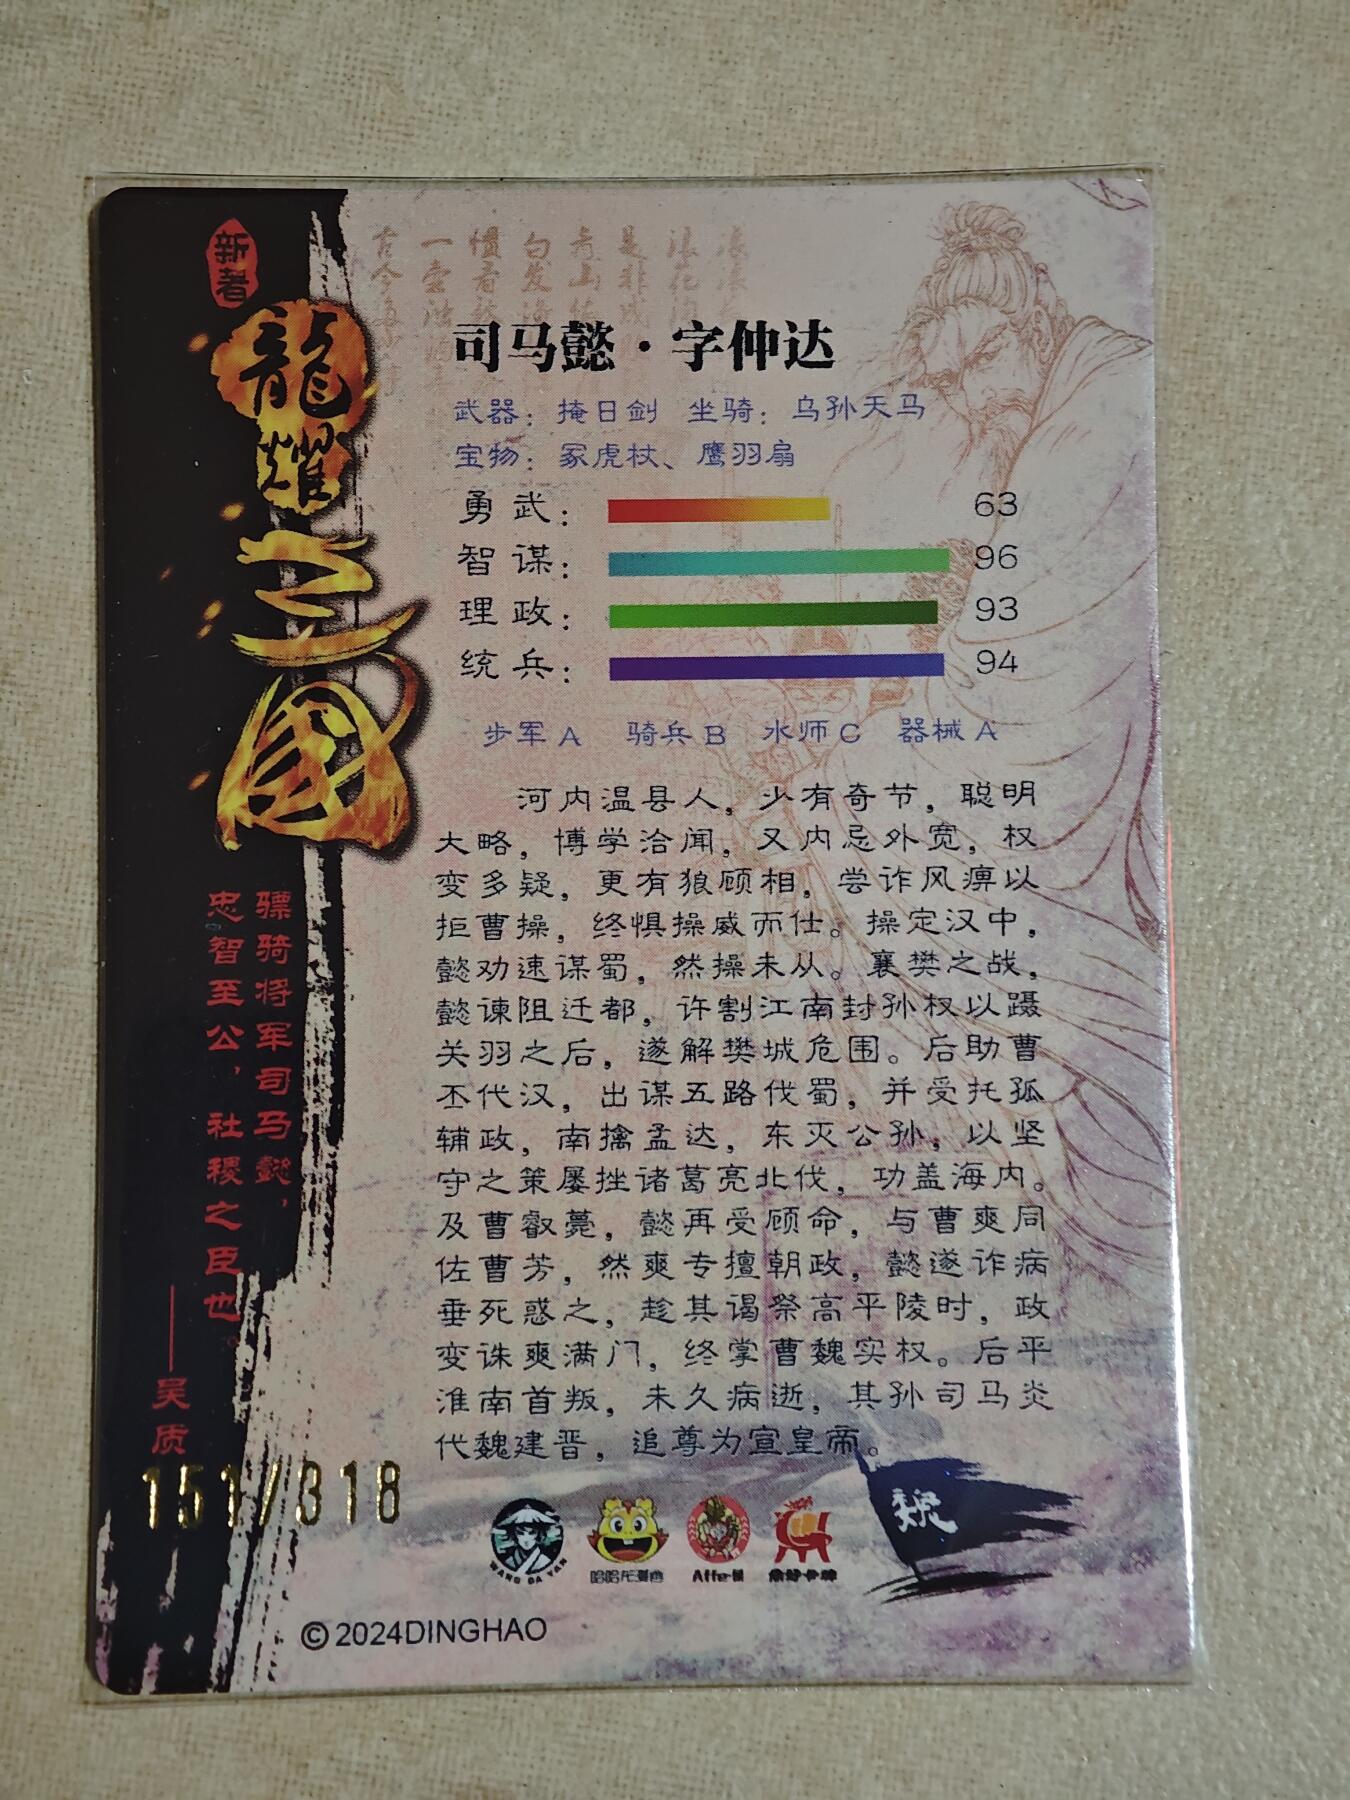 新著
龍耀三國
司马懿·字仲达
武器：掩日剑 坐骑：乌孙天马
宝物：冢虎杖、鹰羽扇
勇武： 63
智谋： 96
理政： 93
统兵： 94
步军A 骑兵B 水师C 器械A
河内温县人，少有奇节，聪明
大略，博学洽闻，又内忌外宽，权
变多疑，更有狼顾相，尝诈风痹以
拒曹操，终惧操威而仕。操定汉中，
懿劝速谋蜀，然操未从。襄樊之战，
懿谏阻迁都，许割江南封孙权以蹑
关羽之后，遂解樊城危围。后助曹
丕代汉，出谋五路伐蜀，并受托孤
辅政，南擒孟达，东灭公孙，以坚
守之策屡挫诸葛亮北伐，功盖海内。
及曹叡薨，懿再受顾命，与曹爽同
佐曹芳，然爽专擅朝政，懿遂诈病
垂死惑之，趁其谒祭高平陵时，政
变诛爽满门，终掌曹魏实权。后平
淮南首叛，未久病逝，其孙司马炎
代魏建晋，追尊为宣皇帝。
骠骑将军司马懿，
忠智至公，社稷之臣也。
——吴质
151/318
WANG DA YAN
魏
©2024DINGHAO